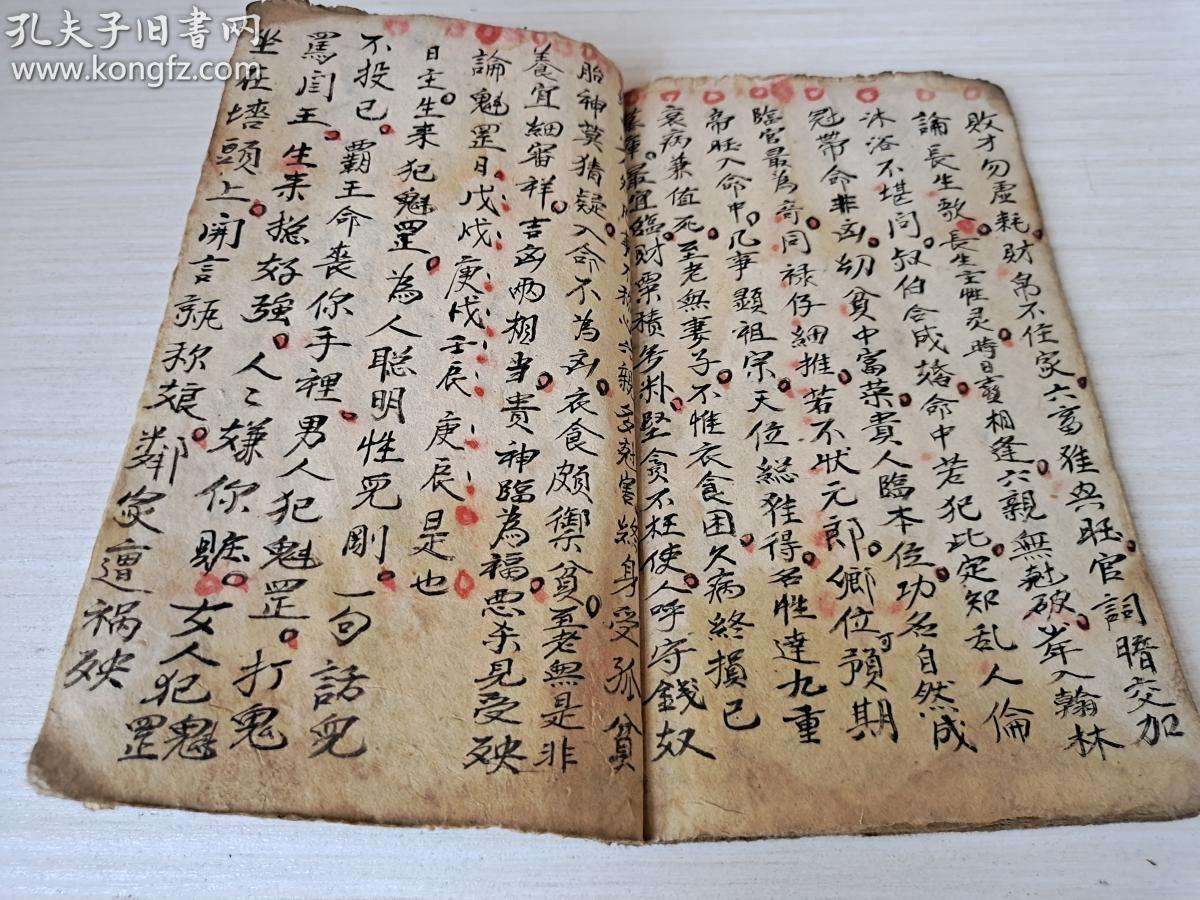 孔夫子旧书网
www.kongfz.com
敗才勿虛耗財帛不住家六畜难典旺官詞暗交加
論長生歌長生宝性灵時日喜相逢六親無尅破少年入翰林
沐浴不堪问叔伯合成婚命中若犯此定知乱人倫
冠帶命非凶幼貧中富荣貴人臨本位功名自然成
臨官最為奇同禄仔細推若不状元郎鄉位可預期
帝旺入命中凡事顕祖宗天位総难得名性達九重
衰病兼值死至老無妻子不惟衣食困久病終損己
墓庫最宜臨財粟積多朴堅貪不枉使人呼守錢奴
六親 害終身受孤貧
胎神莫猜疑入命不為凶衣食頗禦貧至老無是非
養宜細審祥吉凶兩相当貴神臨為福悪杀見受殃
論魁罡日戊戌庚戌壬辰庚辰是也
日主生来犯魁罡為人聪明性児剛一句話児
不投巳覇王命丧你手裡男人犯魁罡打鬼
罵闫王生来捴好強人〻嫌你賍女人犯魁罡
坐在墻頭上開言就称娘鄰家遭祸殃